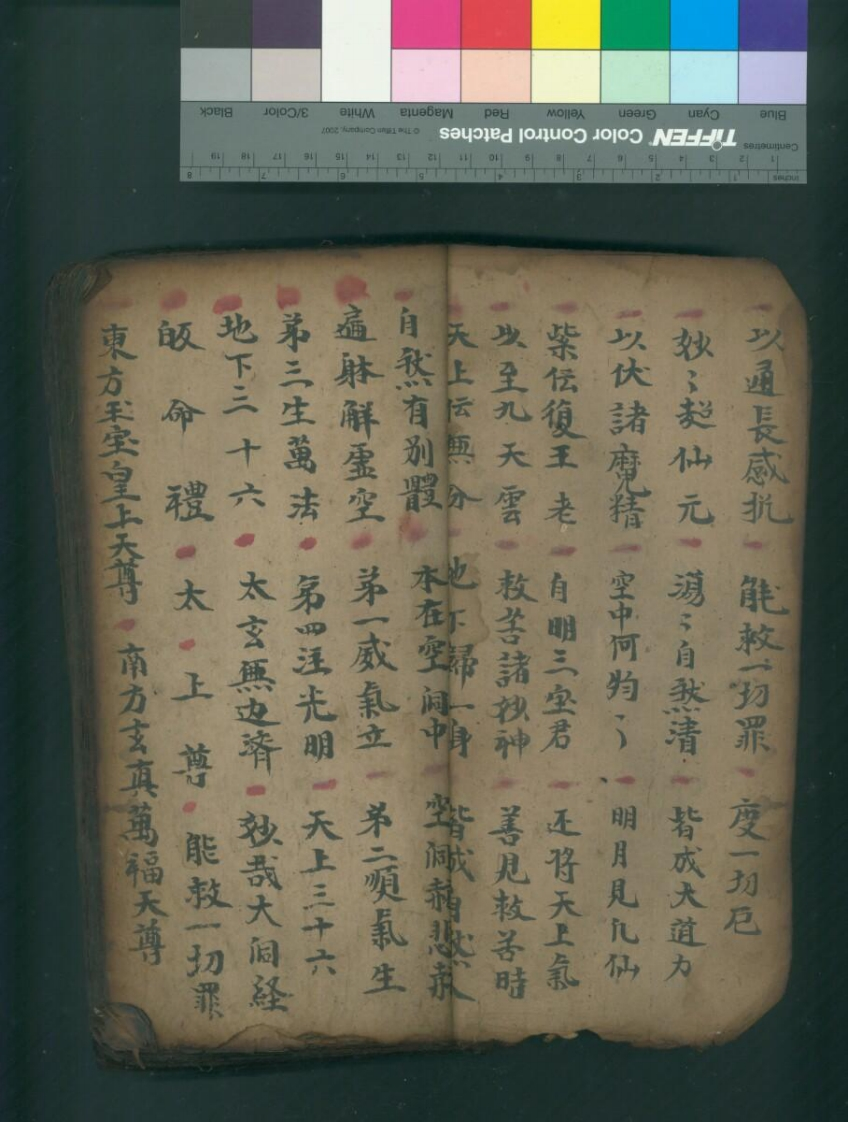 以通長感抗 能救一切罪 度一切厄
妙〻超仙元 蕩〻自然清 皆成大道力
以伏諸魔精 空中何灼〻 明月見凡仙
柴伝復王老 自明三宝君 还将天上氣
以至九天雲 救苦諸妙神 善見救苦時
天上伝無分 地下歸一身 皆成自然
自然有别體 本在空洞中 空洞
遍躰解虚空 苐一威氣立 苐二順氣生
苐三生萬法 苐四注光明 天上三十六
地下三十六 太玄無边濟 妙哉大洞経
皈命禮 太上尊 能救一切罪
東方玉宝皇上天尊 南方玄真萬福天尊
Blue Cyan Green Yellow Red Magenta White 3/Color Black
TIFFEN Color Control Patches © The Tiffen Company, 2007
Centimetres 1 2 3 4 5 6 7 8 9 10 11 12 13 14 15 16 17 18 19
Inches 1 2 3 4 5 6 7 8